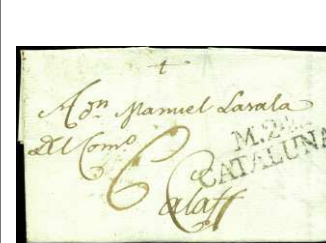 A Dn Manuel Lasala
del Como
6
M.
CATALUÑA
Calaff